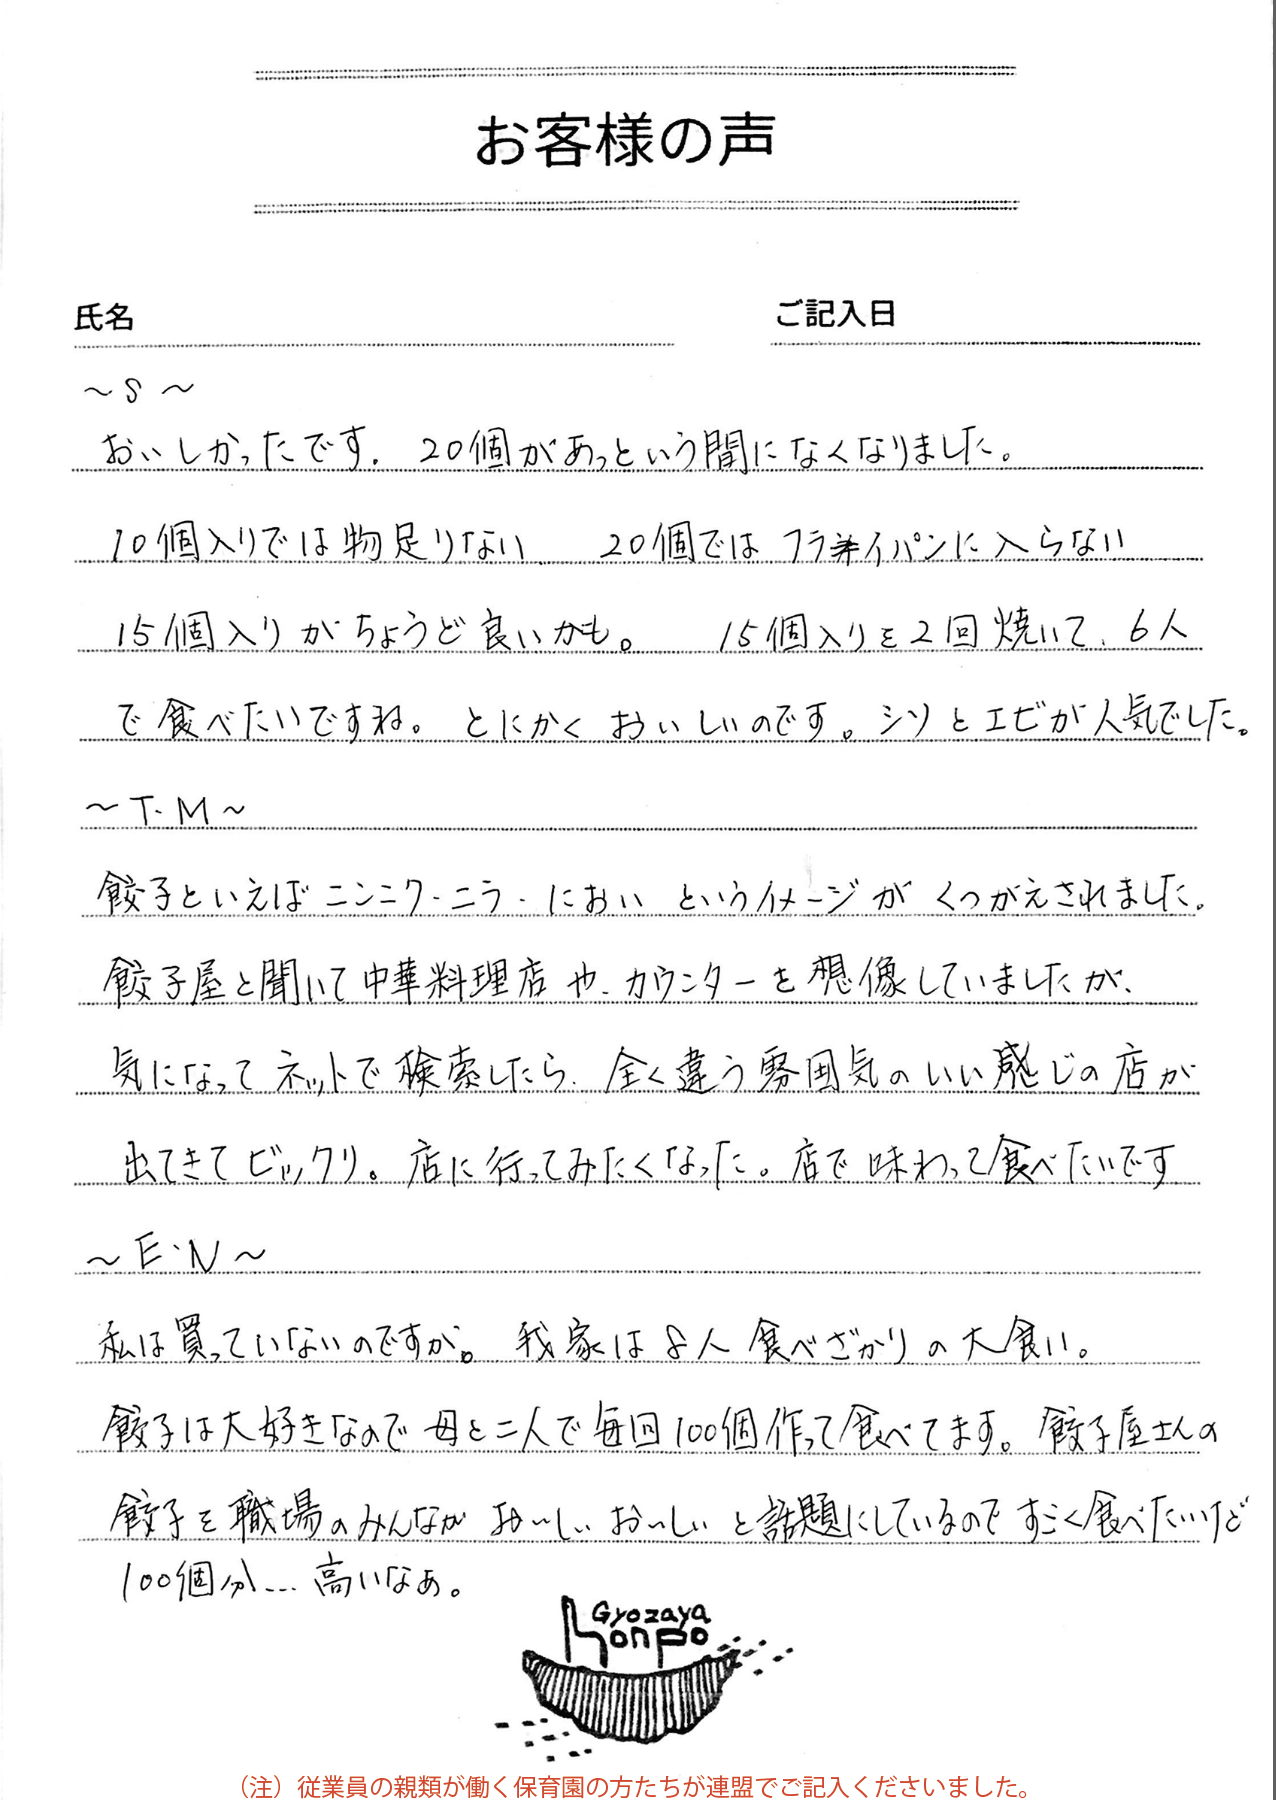 お客様の声
氏名
ご記入日
～S～
おいしかったです. 20個があっという間になくなりました。
10個入りでは物足りない 20個ではフライパンに入らない
15個入りがちょうど良いかも。 15個入りを2回焼いて、6人
で食べたいですね。とにかくおいしいのです。シソとエビが人気でした。
～T・M～
餃子といえばニンニク・ニラ・においというイメージがくつがえされました。
餃子屋と聞いて中華料理店や、カウンターを想像していましたが、
気になってネットで検索したら、全く違う雰囲気のいい感じの店が
出てきてビックリ。店に行ってみたくなった。店で味わって食べたいです
～E・N～
私は買っていないのですが。我家は8人食べざかりの大食い。
餃子は大好きなので母と二人で毎回100個作って食べてます。餃子屋さんの
餃子を職場のみんながおいしいおいしいと話題にしているのですごく食べたいけど
100個分…高いなぁ。
Gyozaya
honpo
（注）従業員の親類が働く保育園の方たちが連盟でご記入くださいました。